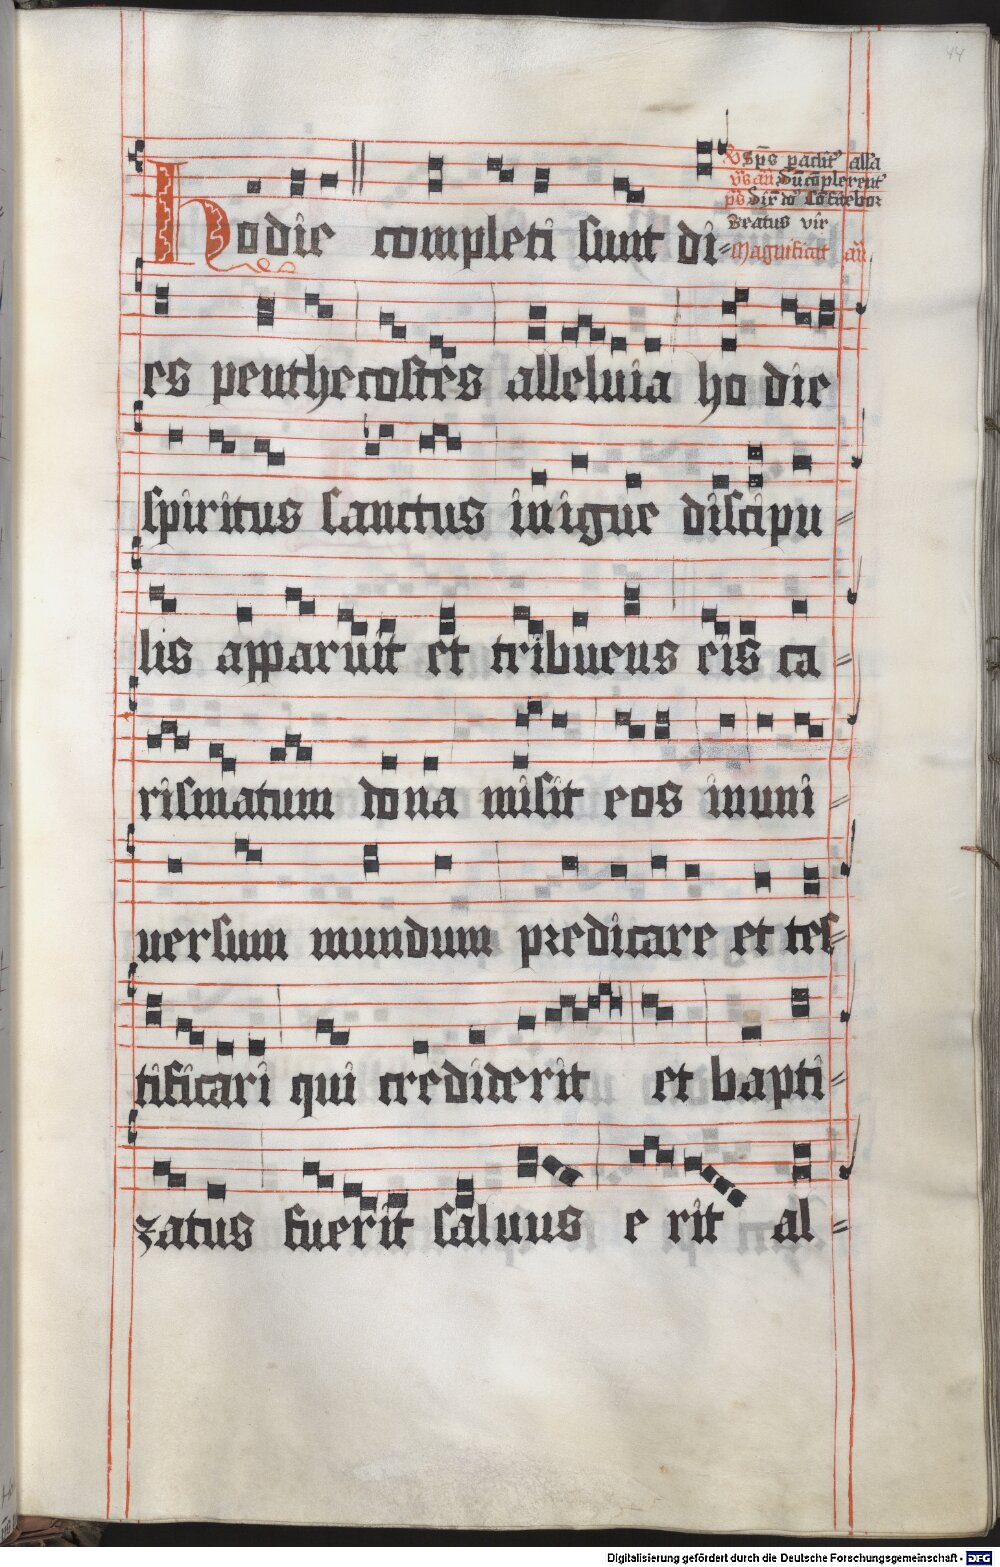 44
Hodie completi sunt di=
℣ Sps paclit' alla
añ Dũ cõplerent'
ps Dix' do' Cõfitebor
Beatus vir
Magnificat añ
es penthecostes alleluia ho die
spiritus sanctus in igne discipu=
lis apparuit et tribuens eis ca=
rismatum dona misit eos in uni=
uersum mundum predicare et tes=
tificari qui crediderit et bapti=
zatus fuerit saluus e rit al=
Digitalisierung gefördert durch die Deutsche Forschungsgemeinschaft - DFG